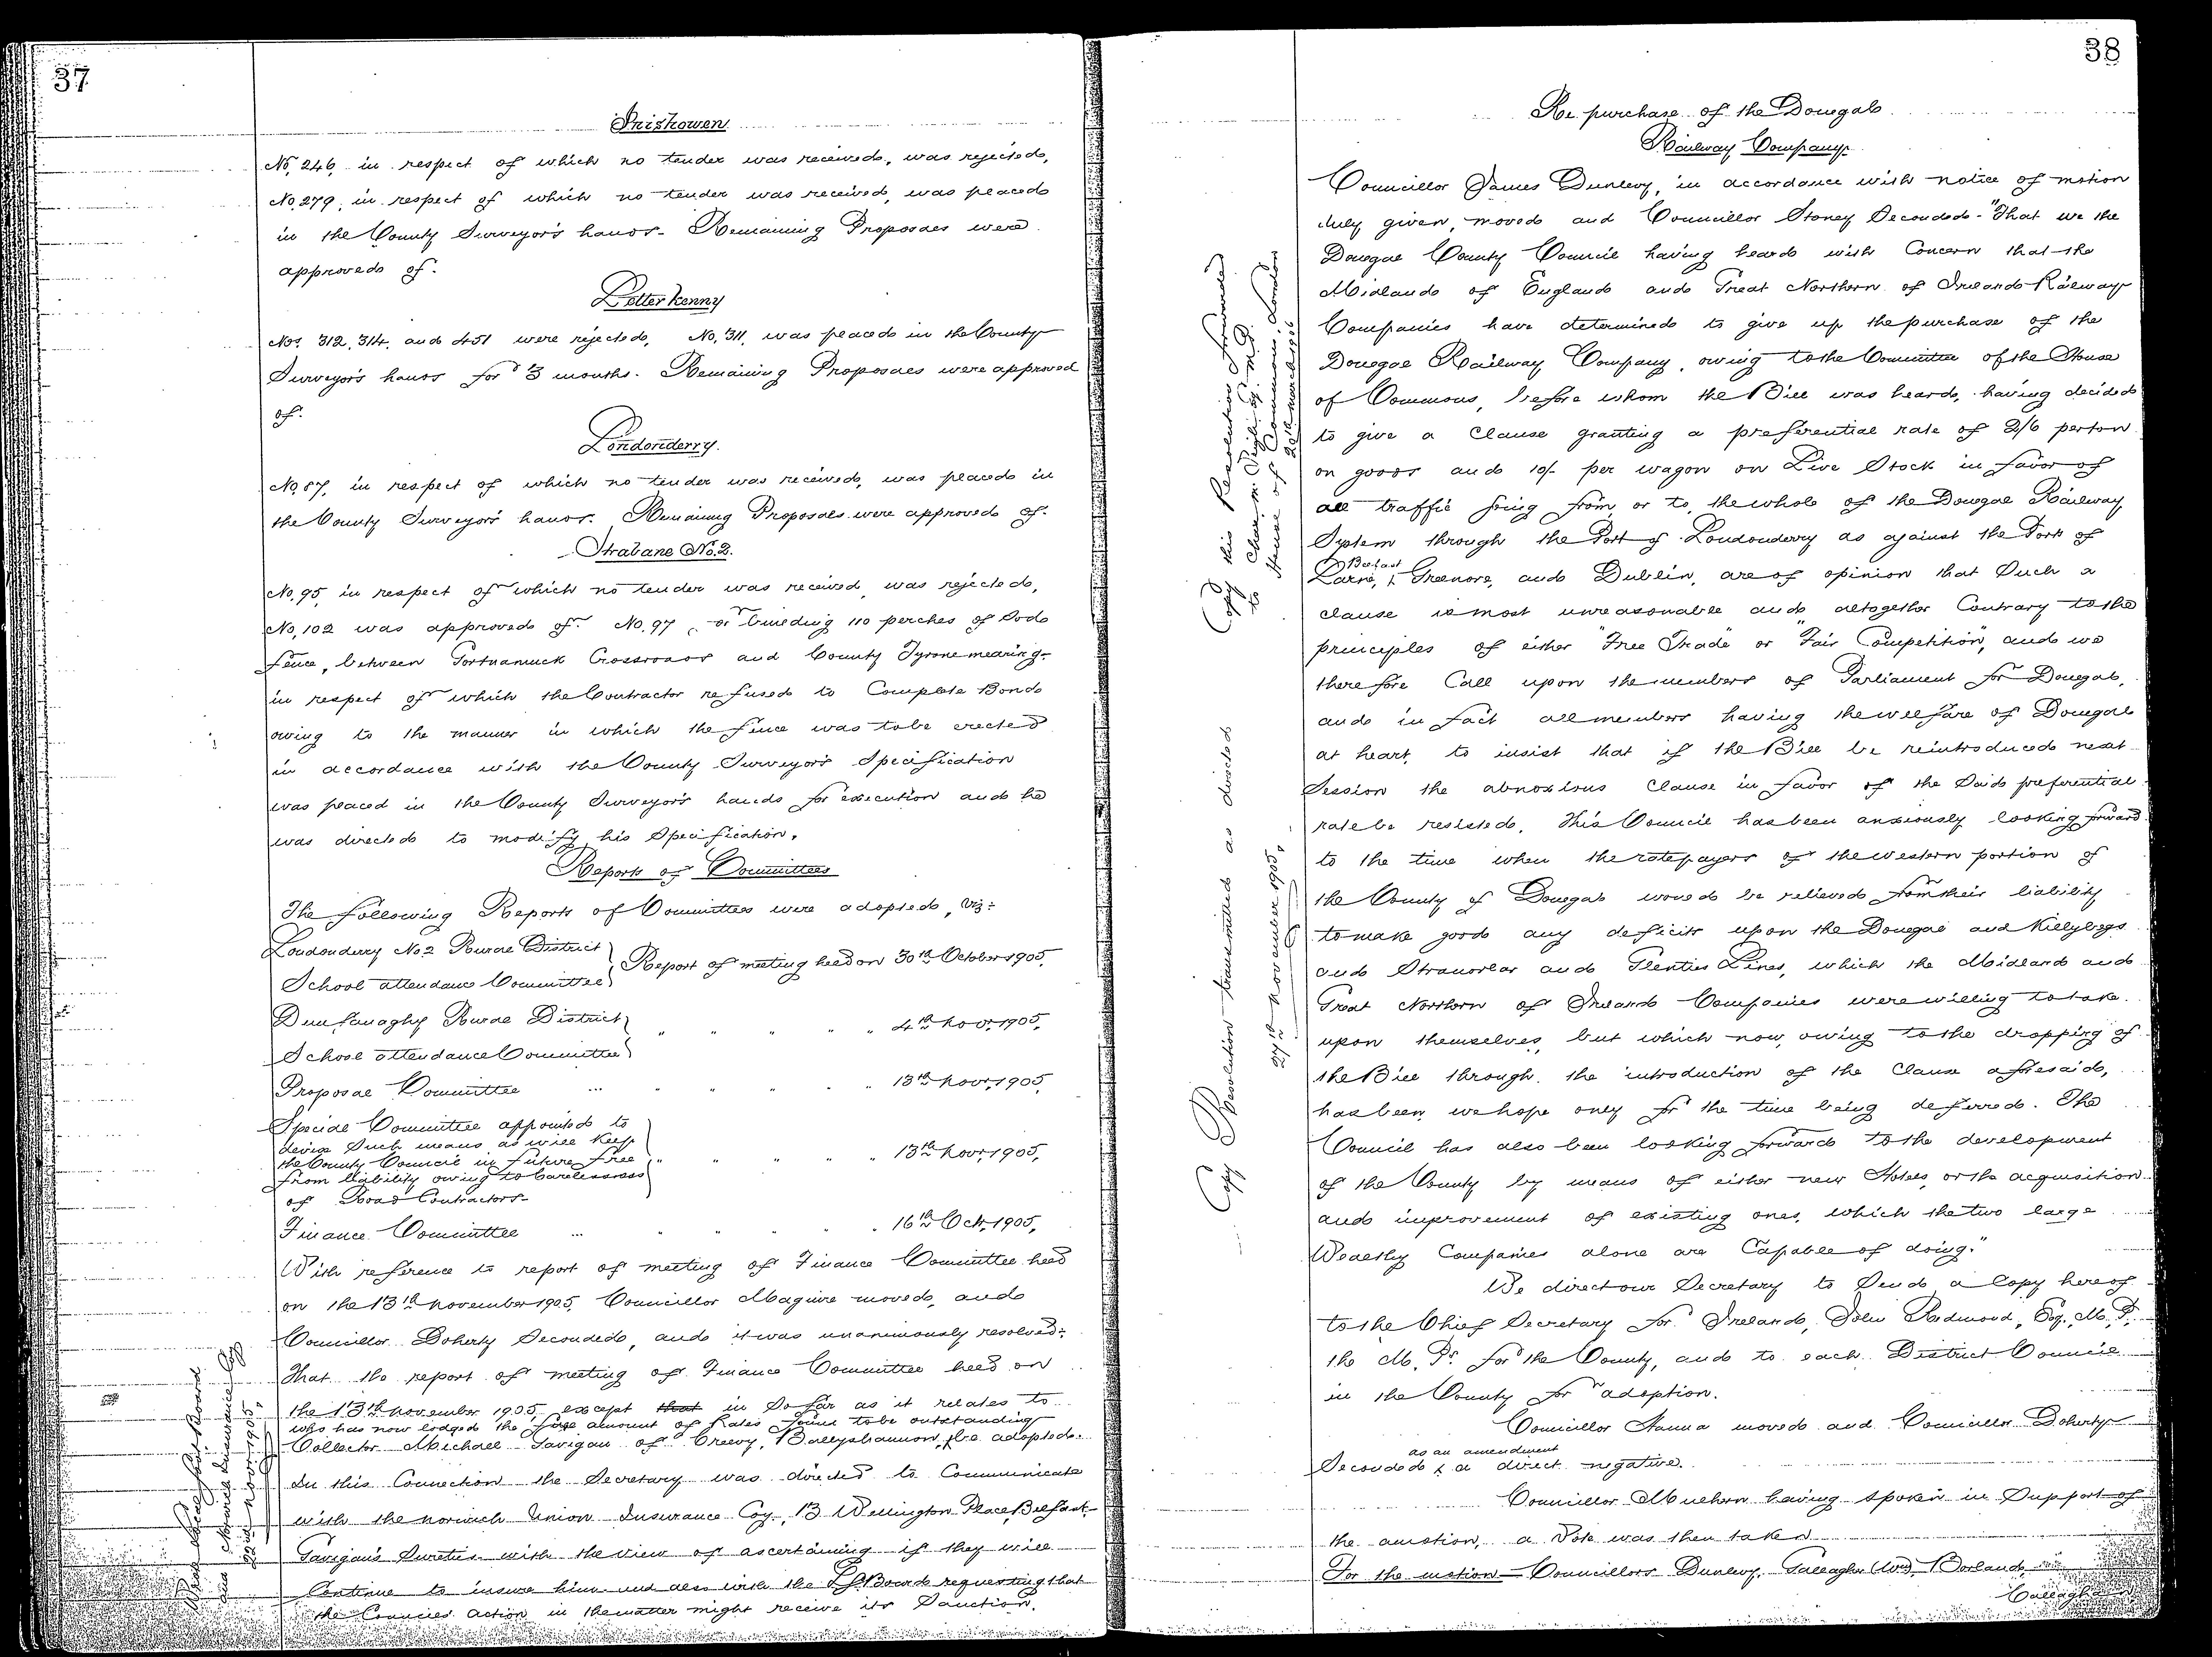 37
Inishowen
No. 246, in respect of which no tender was received, was rejected,
No. 279, in respect of which no tender was received, was placed
in the County Surveyor's hands. Remaining Proposals were
approved of.
Letterkenny
Nos. 312, 314, and 451 were rejected, No. 311, was placed in the County
Surveyor's hands for 3 months. Remaining Proposals were approved
of.
Londonderry.
No. 87, in respect of which no tender was received, was placed in
the County Surveyor's hands. Remaining Proposals were approved of.
Strabane No. 2.
No. 95, in respect of which no tender was received, was rejected,
No. 102 was approved of. No. 97, for building 110 perches of sod
fence, between Gortnamuck Crossroads and County Tyrone mearing,
in respect of which the Contractor refused to Complete Bond
owing to the manner in which the fence was to be erected
in accordance with the County Surveyor's Specification
was placed in the County Surveyor's hands for execution and he
was directed to modify his Specification.
Reports of Committees
The following Reports of Committees were adopted, viz:
Londonderry No. 2 Rural District
School attendance Committee } Report of meeting held on 30th October 1905,
Dunfanaghy Rural District
School attendance Committee } " " " " " 4th Novr. 1905,
Proposal Committee ... " " " " " 13th Novr. 1905,
Special Committee appointed to
devise Such means as will keep
the County Council in future free
from liability owing to Carelessness
of Road Contractors- } " " " " " 13th Novr. 1905,
Finance Committee ... " " " " 16th Oct. 1905,
With reference to report of meeting of Finance Committee held
on the 13th November 1905, Councillor Maguire moved, and
Councillor Doherty Seconded, and it was unanimously resolved:-
That the report of meeting of Finance Committee held on
the 13th November 1905, except that in so far as it relates to
who has now lodged the full amount of Rates found to be outstanding
Collector Michael Gavigan of Creevy, Ballyshannon, be adopted.
In this Connection the Secretary was directed to Communicate
with the Norwich Union Insurance Coy., 13 Wellington Place, Belfast,
Gavigan's Sureties with the view of ascertaining if they will
Continue to insure him and also with the L.G. Board requesting that
the Council's action in the matter might receive its Sanction.
Wrote Local Govt. Board
and Norwich Insurance Coy
22nd Novr. 1905,
38
Re purchase of the Donegal
Railway Company.
Councillor James Dunlevy, in accordance with notice of motion
duly given, moved and Councillor Stoney Seconded- "That we the
Donegal County Council having heard with Concern that the
Midland of England and Great Northern of Ireland Railway
Companies have determined to give up the purchase of the
Donegal Railway Company, owing to the Committee of the House
of Commons, before whom the Bill was heard, having decided
to give a Clause granting a preferential rate of 2/6 per ton
on goods and 10/- per wagon on Live Stock in favor of
all traffic going from, or to, the whole of the Donegal Railway
System through the Port of Londonderry as against the Ports of
Belfast
Larne, ^ Greenore, and Dublin, are of opinion that Such a
clause is most unreasonable and altogether Contrary to the
principles of either "Free Trade" or "Fair Competition", and we
therefore Call upon the members of Parliament for Donegal,
and in fact all members having the welfare of Donegal
at heart, to insist that if the Bill be reintroduced next
Session the abnoxious Clause in favor of the Said preferential
rate be resisted. This Council has been anxiously looking forward
to the time when the ratepayers of the western portion of
the County of Donegal would be relieved from their liability
to make good any deficits upon the Donegal and Killybegs
and Stranorlar and Glenties Lines, which the Midland and
Great Northern of Ireland Companies were willing to take
upon themselves, but which now, owing to the dropping of
the Bill through the introduction of the Clause aforesaid,
has been, we hope only for the time being deferred. The
Council has also been looking forward to the development
of the County by means of either new Hotels, or the acquisition
and improvement of existing ones, which the two large
Wealthy Companies alone are Capable of doing."
We direct our Secretary to Send a Copy hereof
to the Chief Secretary for Ireland, John Redmond, Esq., M.P.,
the M.Ps. for the County, and to each District Council
in the County for adoption.
Councillor Hanna moved and Councillor Doherty
as an amendment
Seconded ^ a direct negative.
Councillor Mulhern having spoken in Support of
the motion, a Vote was then taken
For the motion - Councillors Dunlevy, Gallagher (Wm), Borland,
Callaghan
Copy this Resolution forwarded
to
House of Commons, London
20th March 1906
Copy Resolution transmitted as directed
27th November 1905,